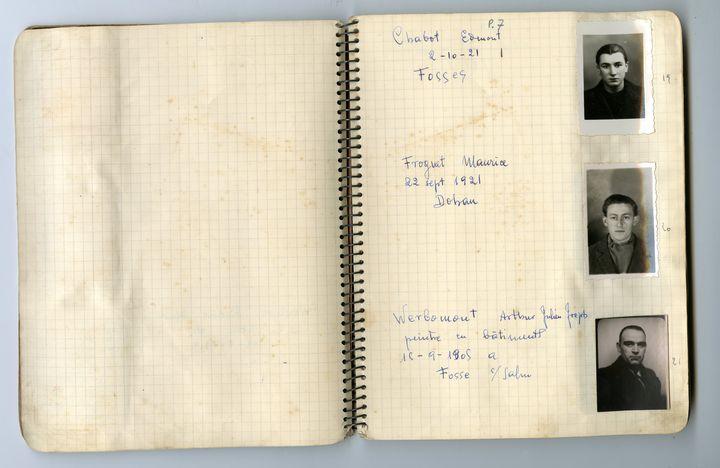 P.7
Chabot Edmont
2-10-21
Fosses
19
Froguet Maurice
22 sept 1921
Dohan
20
Werbomont Arthur Julien Joseph
peintre en bâtiments
15-9-1905 a
Fosse s/Salm
21